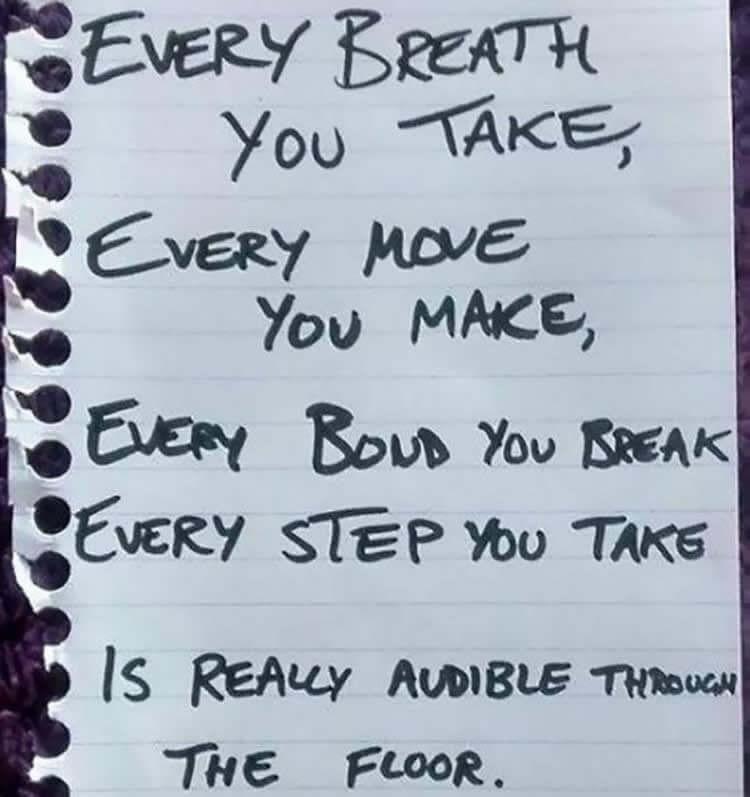 EVERY BREATH
YOU TAKE,
EVERY MOVE
YOU MAKE,
EVERY BOND YOU BREAK
EVERY STEP YOU TAKE
IS REALLY AUDIBLE THROUGH
THE FLOOR.